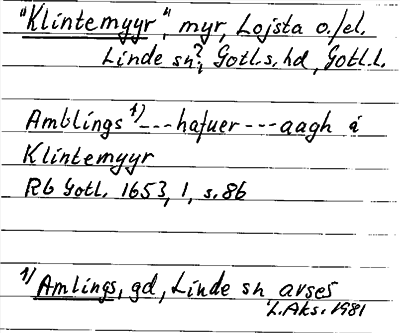 "Klintemyyr", myr, Lojsta o./el.
Linde sn?, Gotl.s. hd, Gotl.l.
Amblings 1) --- hafuer --- aagh i
Klintemyyr
Rb Gotl. 1653, 1, s. 86
1) Amlings, gd, Linde sn avses
L.Aks. 1981